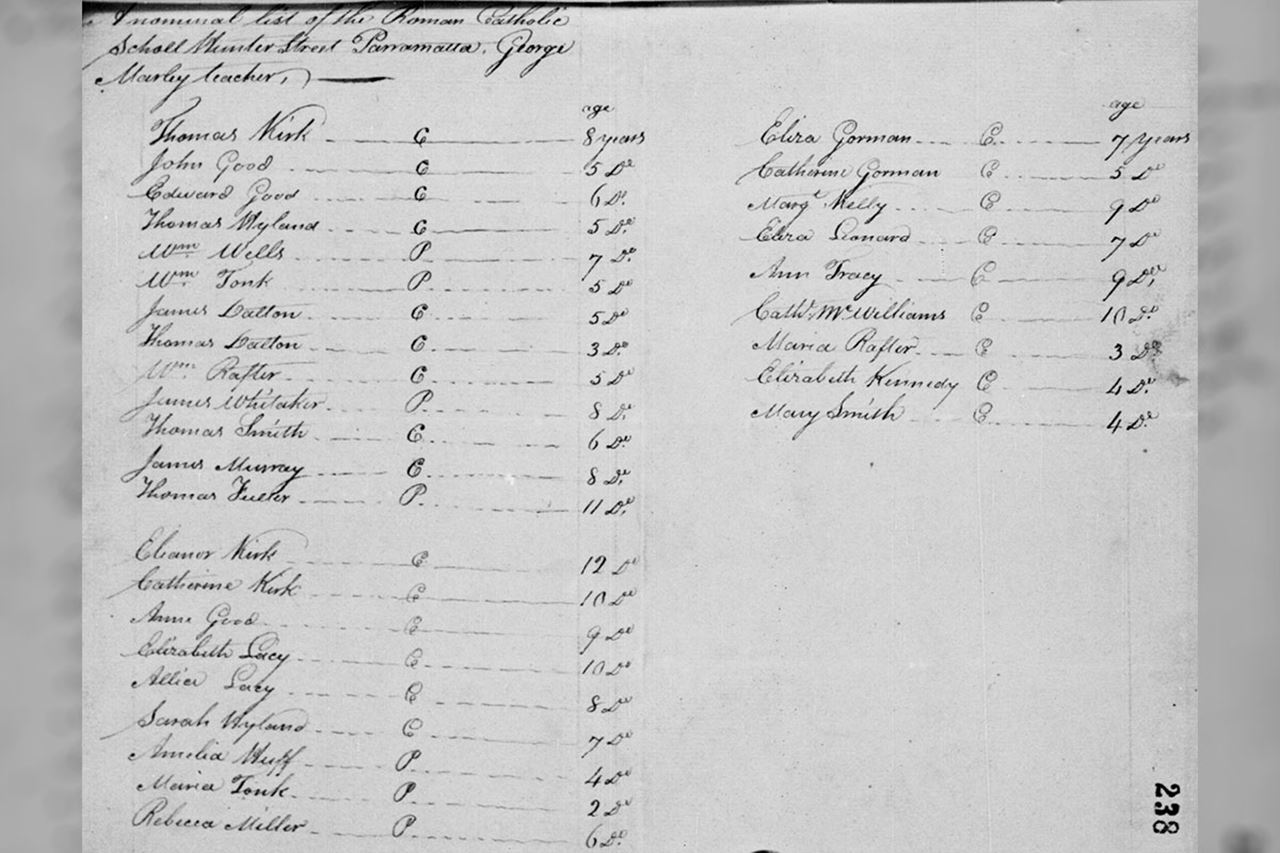 A nominal list of the Roman Catholic
Scholl Hunter Street Parramatta, George
Marley teacher,
age
Thomas Kirk C 8 years
John Good C 5 Do
Edward Good C 6 Do
Thomas Hyland C 5 Do
Wm Wells P 7 Do
Wm Tonk P 5 Do
James Dalton C 5 Do
Thomas Dalton C 3 Do
Wm Rafter C 5 Do
James Whitaker P 8 Do
Thomas Smith C 6 Do
James Murray C 8 Do
Thomas Fuller P 11 Do
Eleanor Kirk C 12 Do
Catherine Kirk C 10 Do
Anne Good C 9 Do
Elizabeth Lacy C 10 Do
Allice Lacy C 8 Do
Sarah Hyland C 7 Do
Amelia Huff P 4 Do
Maria Tonk P 2 Do
Rebecca Miller P 6 Do
age
Eliza Gorman C 7 years
Catherine Gorman C 5 Do
Margt Kelly C 9 Do
Eliza Leonard C 7 Do
Ann Tracy C 9 Do
Cath. McWilliams C 10 Do
Maria Rafter C 3 Do
Elizabeth Kennedy C 4 Do
Mary Smith C 4 Do
238